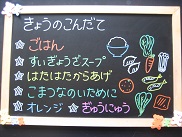 きょうのこんだて
☆ごはん
☆すいぎょうざスープ
☆はたはたからあげ
☆こまつなのいために
☆オレンジ ☆ぎゅうにゅう